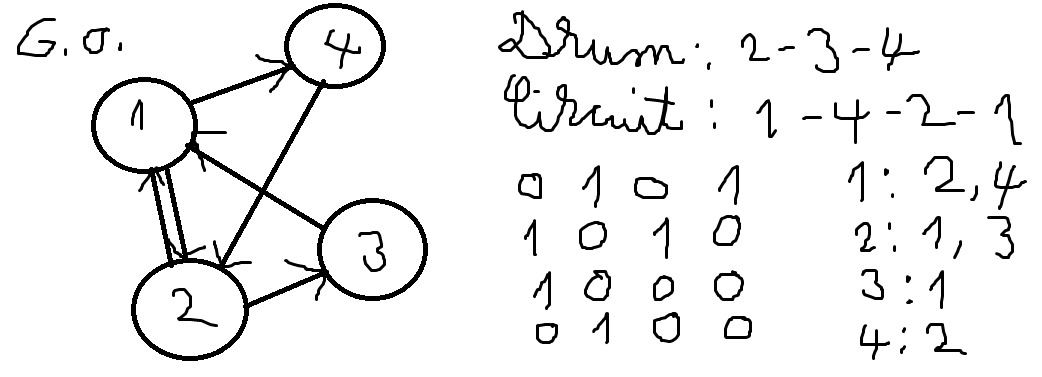 G.O.
1
4
2
3
Drum: 2-3-4
Circuit: 1-4-2-1
0 1 0 1
1 0 1 0
1 0 0 0
0 1 0 0
1: 2, 4
2: 1, 3
3: 1
4: 2